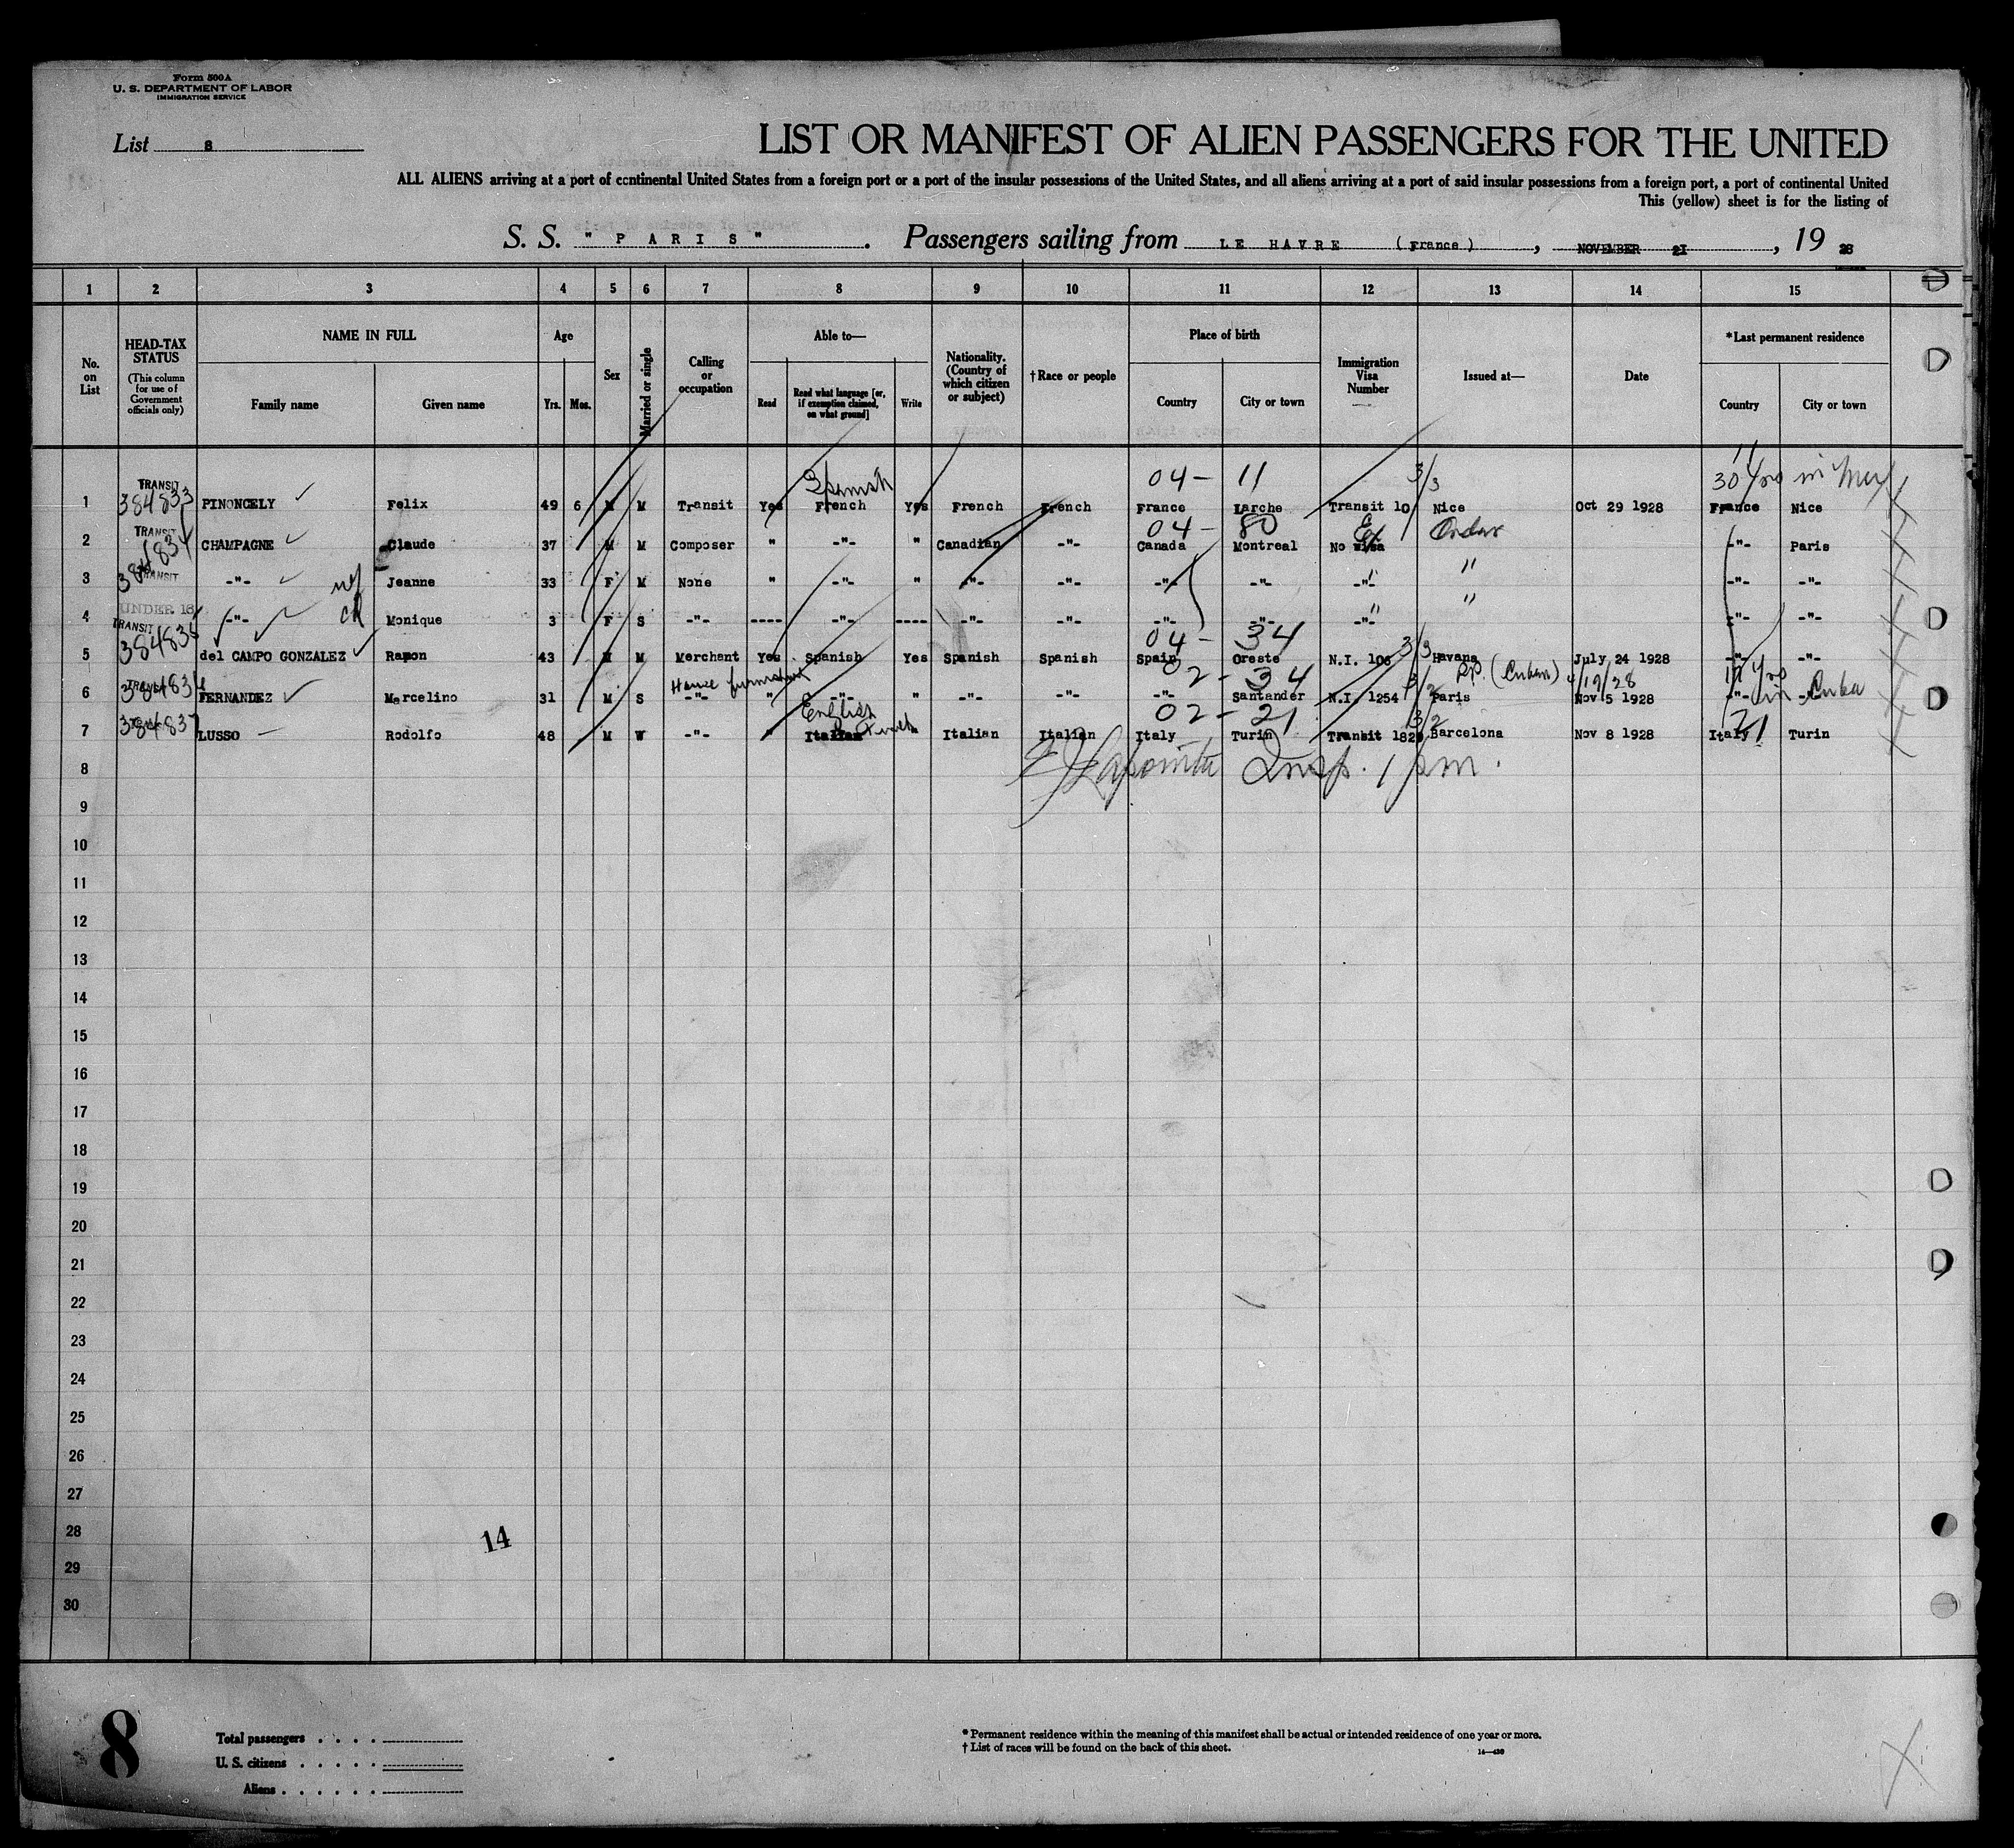 Form 500A
U. S. DEPARTMENT OF LABOR
IMMIGRATION SERVICE
List 8
LIST OR MANIFEST OF ALIEN PASSENGERS FOR THE UNITED
ALL ALIENS arriving at a port of continental United States from a foreign port or a port of the insular possessions of the United States, and all aliens arriving at a port of said insular possessions from a foreign port, a port of continental United
This (yellow) sheet is for the listing of
S. S. "PARIS". Passengers sailing from LE HAVRE (France), NOVEMBER 21, 19 28
1 2 3 4 5 6 7 8 9 10 11 12 13 14 15
No. on List
HEAD-TAX STATUS
(This column for use of Government officials only)
NAME IN FULL
Family name Given name
Age
Yrs. Mos.
Sex
Married or single
Calling or occupation
Able to—
Read
Read what language [or, if exemption claimed, on what ground]
Write
Nationality. (Country of which citizen or subject)
†Race or people
Place of birth
Country City or town
Immigration Visa Number
Issued at—
Date
*Last permanent residence
Country City or town
TRANSIT Spanish 04- 11 3/3 30 yrs in Mex
1 384833 PINONCELY Felix 49 6 M M Transit Yes French Yes French French France Larche Transit 10 Nice Oct 29 1928 France Nice
TRANSIT 04- 80 Order
2 384834 CHAMPAGNE Claude 37 M M Composer " -"- " Canadian -"- Canada Montreal No visa -"- Paris
TRANSIT "
3 -"- wf Jeanne 33 F M None " -"- " -"- -"- -"- -"- -"- -"- -"-
UNDER 16 "
4 TRANSIT -"- ch Monique 3 F S -"- ---- -"- ---- -"- -"- -"- -"- -"- -"- -"-
384835 04- 34 3/3
5 del CAMPO GONZALEZ Ramon 43 M M Merchant Yes Spanish Yes Spanish Spanish Spain Oreste N.I. 106 Havana July 24 1928 -"- -"-
House furnishing 02-34 3/2 (Cuban) 4/19/28 yrs in Cuba
6 384836 FERNANDEZ Marcelino 31 M S -"- " -"- " -"- -"- -"- Santander N.I. 1254 Paris Nov 5 1928 -"- -"-
English French 02-21 3/2 21
7 384837 LUSSO Rodolfo 48 M W -"- " Italian Italian Italian Italy Turin Transit 182 Barcelona Nov 8 1928 Italy Turin
8 Lapointe Insp. 1 pm.
9
10
11
12
13
14
15
16
17
18
19
20
21
22
23
24
25
26
27
28
14
29
30
8
Total passengers
U. S. citizens
Aliens
* Permanent residence within the meaning of this manifest shall be actual or intended residence of one year or more.
† List of races will be found on the back of this sheet.
14—430